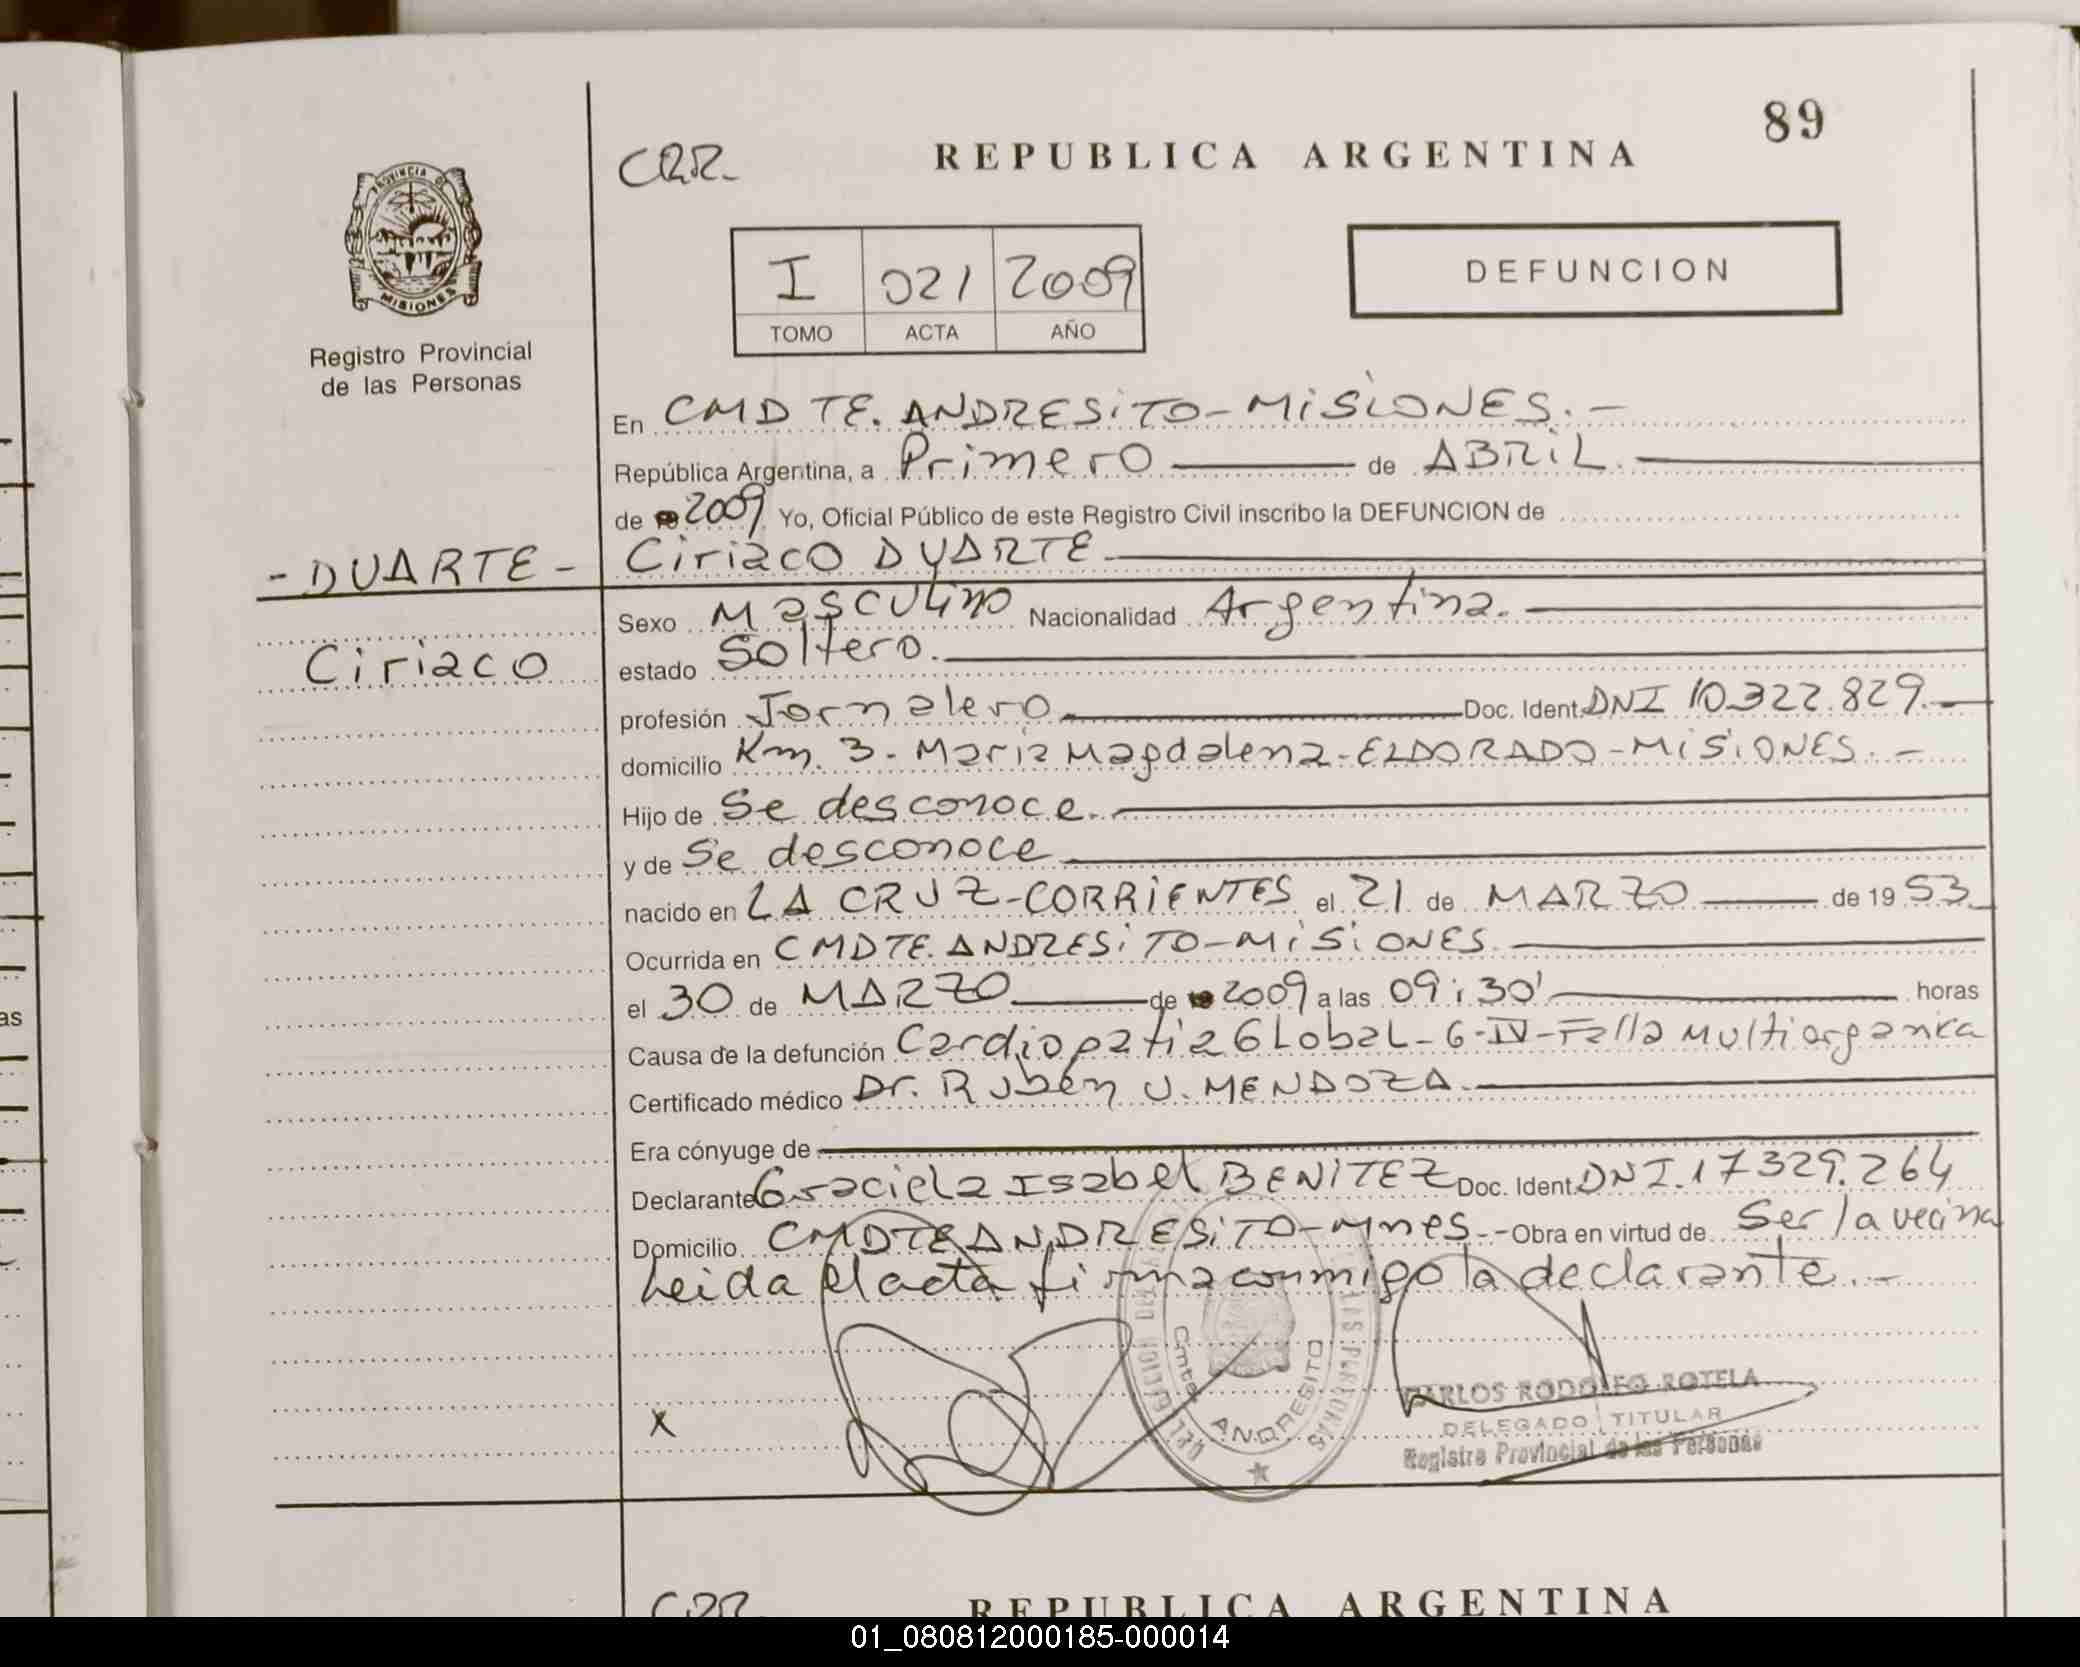 89
CRR.
REPUBLICA ARGENTINA
PROVINCIA DE
MISIONES
I 021 2009
TOMO ACTA AÑO
DEFUNCION
Registro Provincial
de las Personas
En CMDTE. ANDRESiTO-MiSIONES.-
República Argentina, a Primero de ABRiL.
de 2009 Yo, Oficial Público de este Registro Civil inscribo la DEFUNCION de
-DUARTE- Ciriaco DUARTE
Sexo Masculino Nacionalidad Argentina.
Ciriaco
estado Soltero.
profesión Jornalero Doc. Ident. DNI 10.322.829.-
domicilio Km. 3- Maria Magdalena-ELDORADO-MiSiONES.-
Hijo de Se desconoce.
y de Se desconoce
nacido en LA CRUZ-CORRiENTES el 21 de MARZO de 1953
Ocurrida en CMDTE. ANDRESiTO-MiSiONES
el 30 de MARZO de 2009 a las 09:30' horas
Causa de la defunción Cardiopatia GLobaL-G-IV-Falla Multiorganica
Certificado médico Dr. Rubén U. MENDOZA.
Era cónyuge de
Declarante Graciela Isabel BENiTEZ Doc. Ident. DNI.17329.264
Domicilio CMDTE ANDRESiTO-Mnes.- Obra en virtud de Ser la vecina
Leida el acta firma conmigo la declarante.-
x
DELEGACION DE LAS PERSONAS
Cmte. ANDRESITO
CARLOS RODOLFO ROTELA
DELEGADO TITULAR
Registro Provincial de las Personas
CRR
REPUBLICA ARGENTINA
as
01_080812000185-000014